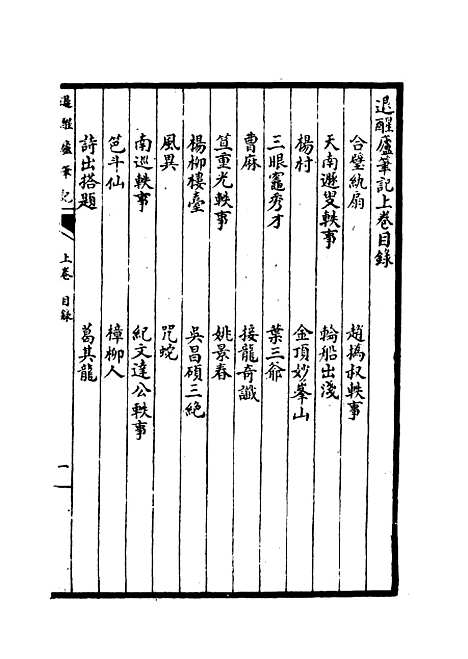 退醒廬筆記上卷目錄
合璧紈扇　趙撝叔軼事
天南遯叟軼事　輪船出淺
楊村　金頂妙峯山
三眼竈秀才　葉三爺
曹麻　接龍奇讖
笪重光軼事　姚景春
楊柳樓臺　吳昌碩三絕
風異　咒蛇
南巡軼事　紀文達公軼事
笆斗仙　樟柳人
詩出搭題　葛其龍
退醒廬筆記　上卷　目錄　一